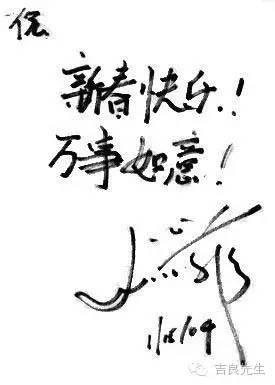 新春快乐！
万事如意！
1/18/04
吉良先生